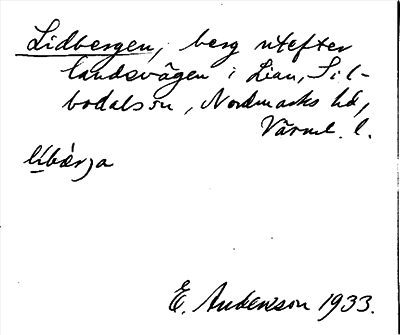 Lidbergen, berg utefter
landsvägen i Lian, Sil-
bodals sn, Nordmarks hd,
Värml. l.
libærja
E. Andersson 1933.